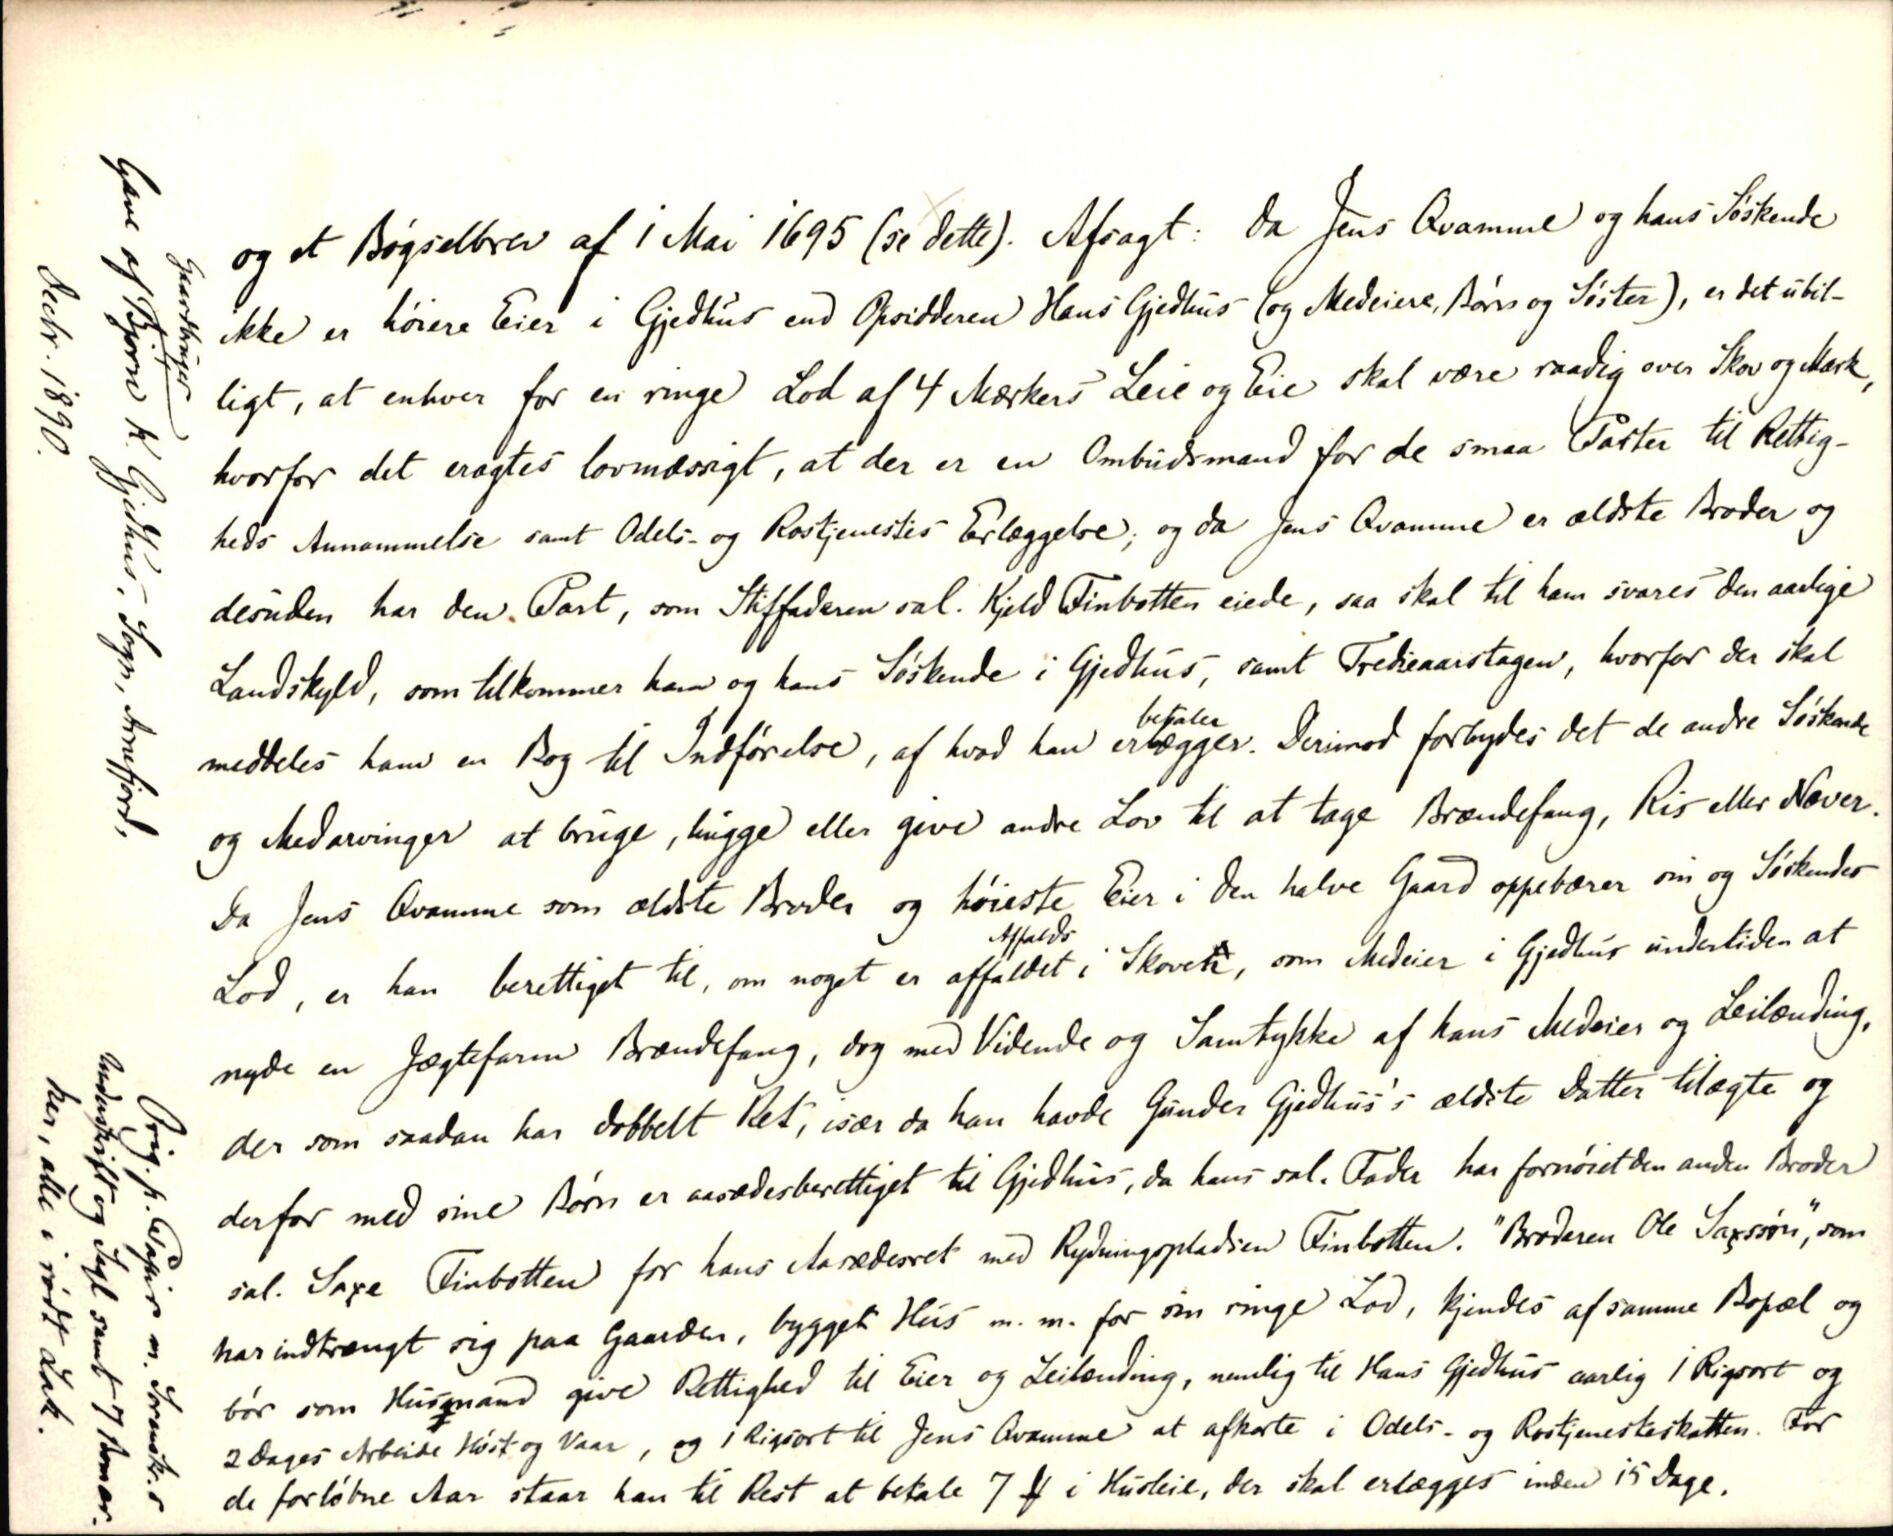 og et Bøgselbrev af 1 Mai 1695 (se dette). Afsagt: da Jens Qvamme og hans Søskende
ikke er høiere Eier i Gjedhus end Opsidderen Hans Gjedhus (og Medeiere, Børn og Søster), er det ubil-
ligt, at enhver for en ringe Lod af 4 Mærkers Leie og Eie skal være raadig over Skov og Mark,
hvorfor det eragtes lovmæssigt, at der er en Ombudsmand for de smaa Parter til Rettig-
heds Annammelse samt Odels- og Rostjenestes Erlæggelse; og da Jens Qvamme er ældste Broder og
desuden har den Part, som Stiffaderen sal. Kjeld Finbotten eiede, saa skal til ham svares den aarlige
Landskyld, som tilkommer ham og hans Søskende i Gjedhus, samt Trediaarstagen, hvorfor der skal
meddeles ham en Bog til Indførelse, af hvad han betaler erlægger. Derimod forbydes det de andre Søskende
og Medarvinger at bruge, hugge eller give andre Lov til at tage Brændefang, Ris eller Næver.
Da Jens Qvamme som ældste Broder og høieste Eier i den halve Gaard oppebærer sin og Søskendes
Lod, er han berettiget til, om noget er Affalds affaldet i Skoven, som Medeier i Gjedhus undertiden at
nyde en Jægtefarm Brændefang, dog med Vidende og Samtykke af hans Medeier og Leilænding,
der som saadan har dobbelt Ret, især da han havde Gunder Gjedhus's ældste Datter tilægte og
derfor med sine Børn er aasædesberettiget til Gjedhus, da hans sal. Fader har fornøiet den anden Broder
sal. Saxe Finbotten for hans Aasædesret med Rydningspladsen Finbotten. "Broderen Ole Saxssøn", som
har indtrængt sig paa Gaarden, bygget Hus m. m. for sin ringe Lod, kjendes af samme Bopæl og
bør som Husmand give Rettighed til Eier og Leilænding, nemlig til Hans Gjedhus aarlig 1 Rigsort og
2 Dages Arbeide Høst og Vaar, og 1 Rigsort til Jens Qvamme at afkorte i Odels- og Rostjenesteskatten. For
de forløbne Aar staar han til Rest at betale 7 ꝟ i Husleie, der skal erlægges inden 15 Dage.
Gaardbruger
Gave af Bjørn K. Gjedhus, Sogn, Arnefjord,
Decbr. 1890.
Orig. p. Papir m. Sorenskr.s
Underskrift og Segl samt 7 Armer.
ker, alle i rødt Lak.